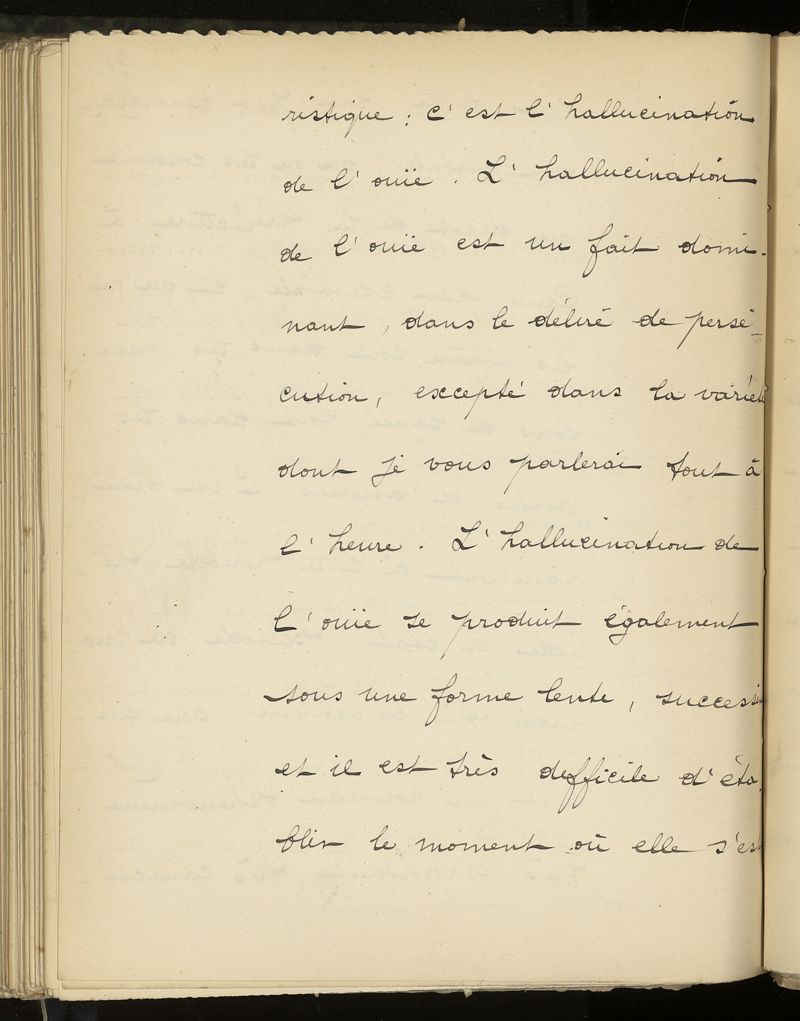 ristique : c'est l'hallucination
de l'ouïe. L'hallucination
de l'ouïe est un fait domi-
nant, dans le délire de persé-
cution, excepté dans la variété
dont je vous parlerai tout à
l'heure. L'hallucination de
l'ouïe se produit également
sous une forme lente, successi
et il est très defficile d'éta-
blir le moment où elle s'est